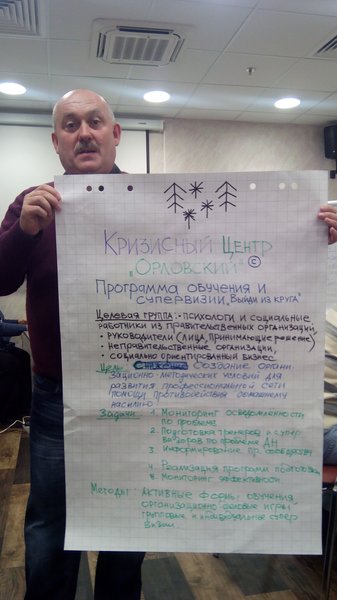 Кризисный Центр
"Орловский" ©
Программа обучения и
супервизии „Выйди из круга"
Целевая группа: - психологи и социальные
работники из правительственных организаций,
• руководители (лица, принимающие решение)
• неправительственные организации,
• социально ориентированный бизнес
Цель: Создание органи
зационно-методических условий для
развития профессиональной сети
помощи противодействия домашнему
насилию
Задачи: 1. Мониторинг осведомленности
по проблеме
2. Подготовка тренеров и супер
визоров по проблеме ДН
3. Информирование пр. сообщества
4. Реализация программ подготовки
5. Мониторинг эффективности
Методы: Активные формы обучения
организационно деловые игры
групповые и индивидуальные супер
визии.